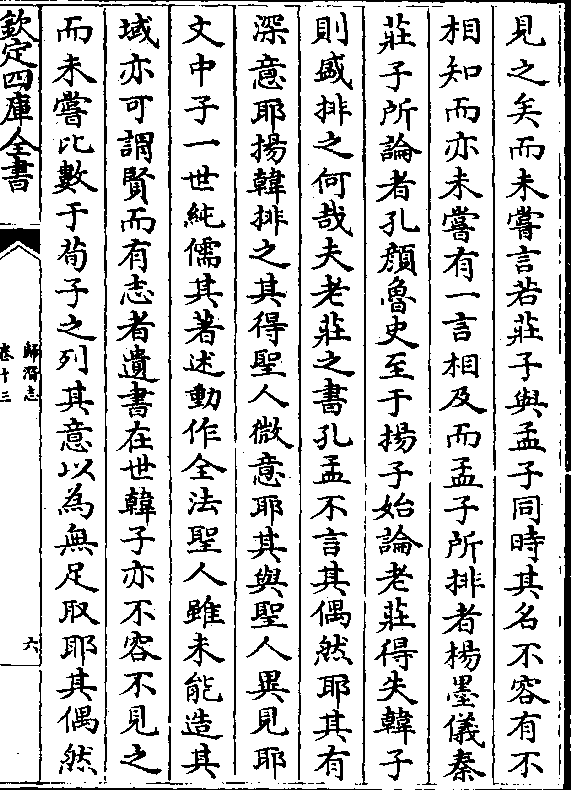 見之矣而未嘗言若莊子與孟子同時其名不容有不
相知而亦未嘗有一言相及而孟子所排者楊墨儀秦
莊子所論者孔顏魯史至于揚子始論老莊得失韓子
則盛排之何哉夫老莊之書孔孟不言其偶然耶其有
深意耶揚韓排之其得聖人微意耶其與聖人異見耶
文中子一世純儒其著述動作全法聖人雖未能造其
域亦可謂賢而有志者遺書在世韓子亦不容不見之
而未嘗比數于荀子之列其意以為無足取耶其偶然
欽定四庫全書
歸潛志
卷十三
六